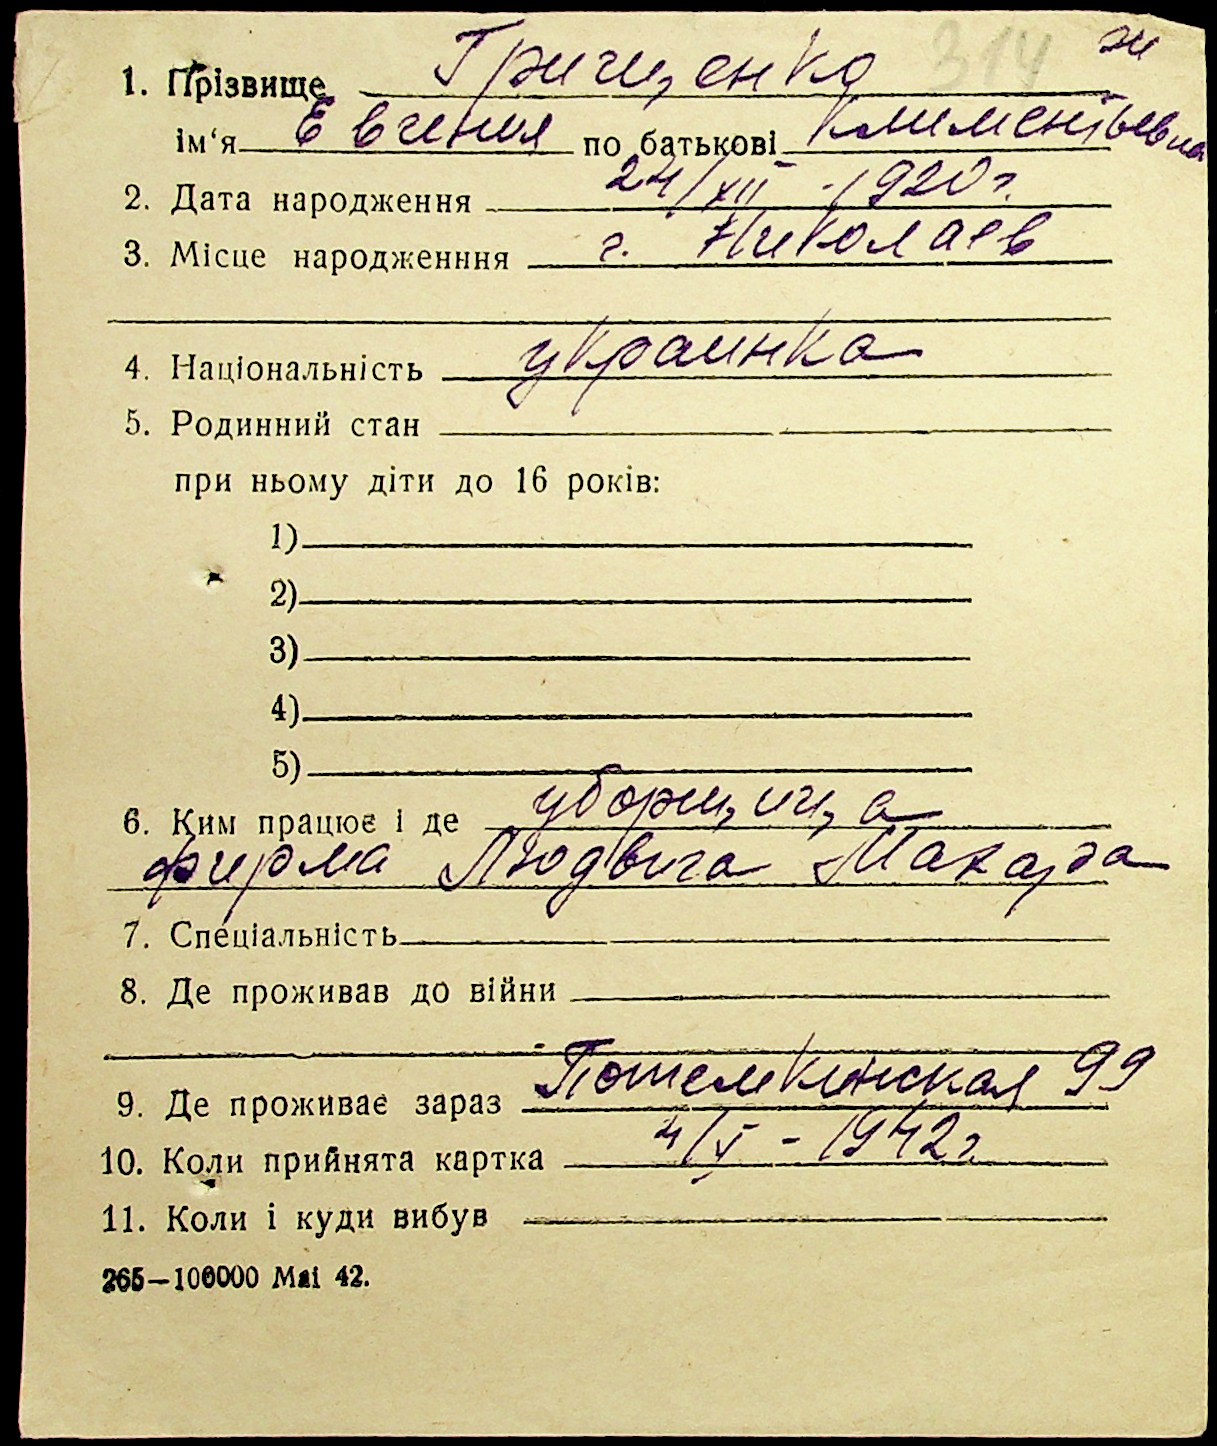 314 ж
1. Прізвище Грищенко
ім‘я Евгения по батькові Климентьевна
2. Дата народження 24/XII - 1920 г.
3. Місце народженння г. Николаев
4. Національність украинка
5. Родинний стан
при ньому діти до 16 років:
1)
2)
3)
4)
5)
6. Ким працює і де уборщица
фирма Людвига Махарда
7. Спеціальність
8. Де проживав до війни
9. Де проживає зараз Потемкинская 99
10. Коли прийнята картка 4/V - 1942 г.
11. Коли і куди вибув
265—100000 Mai 42.